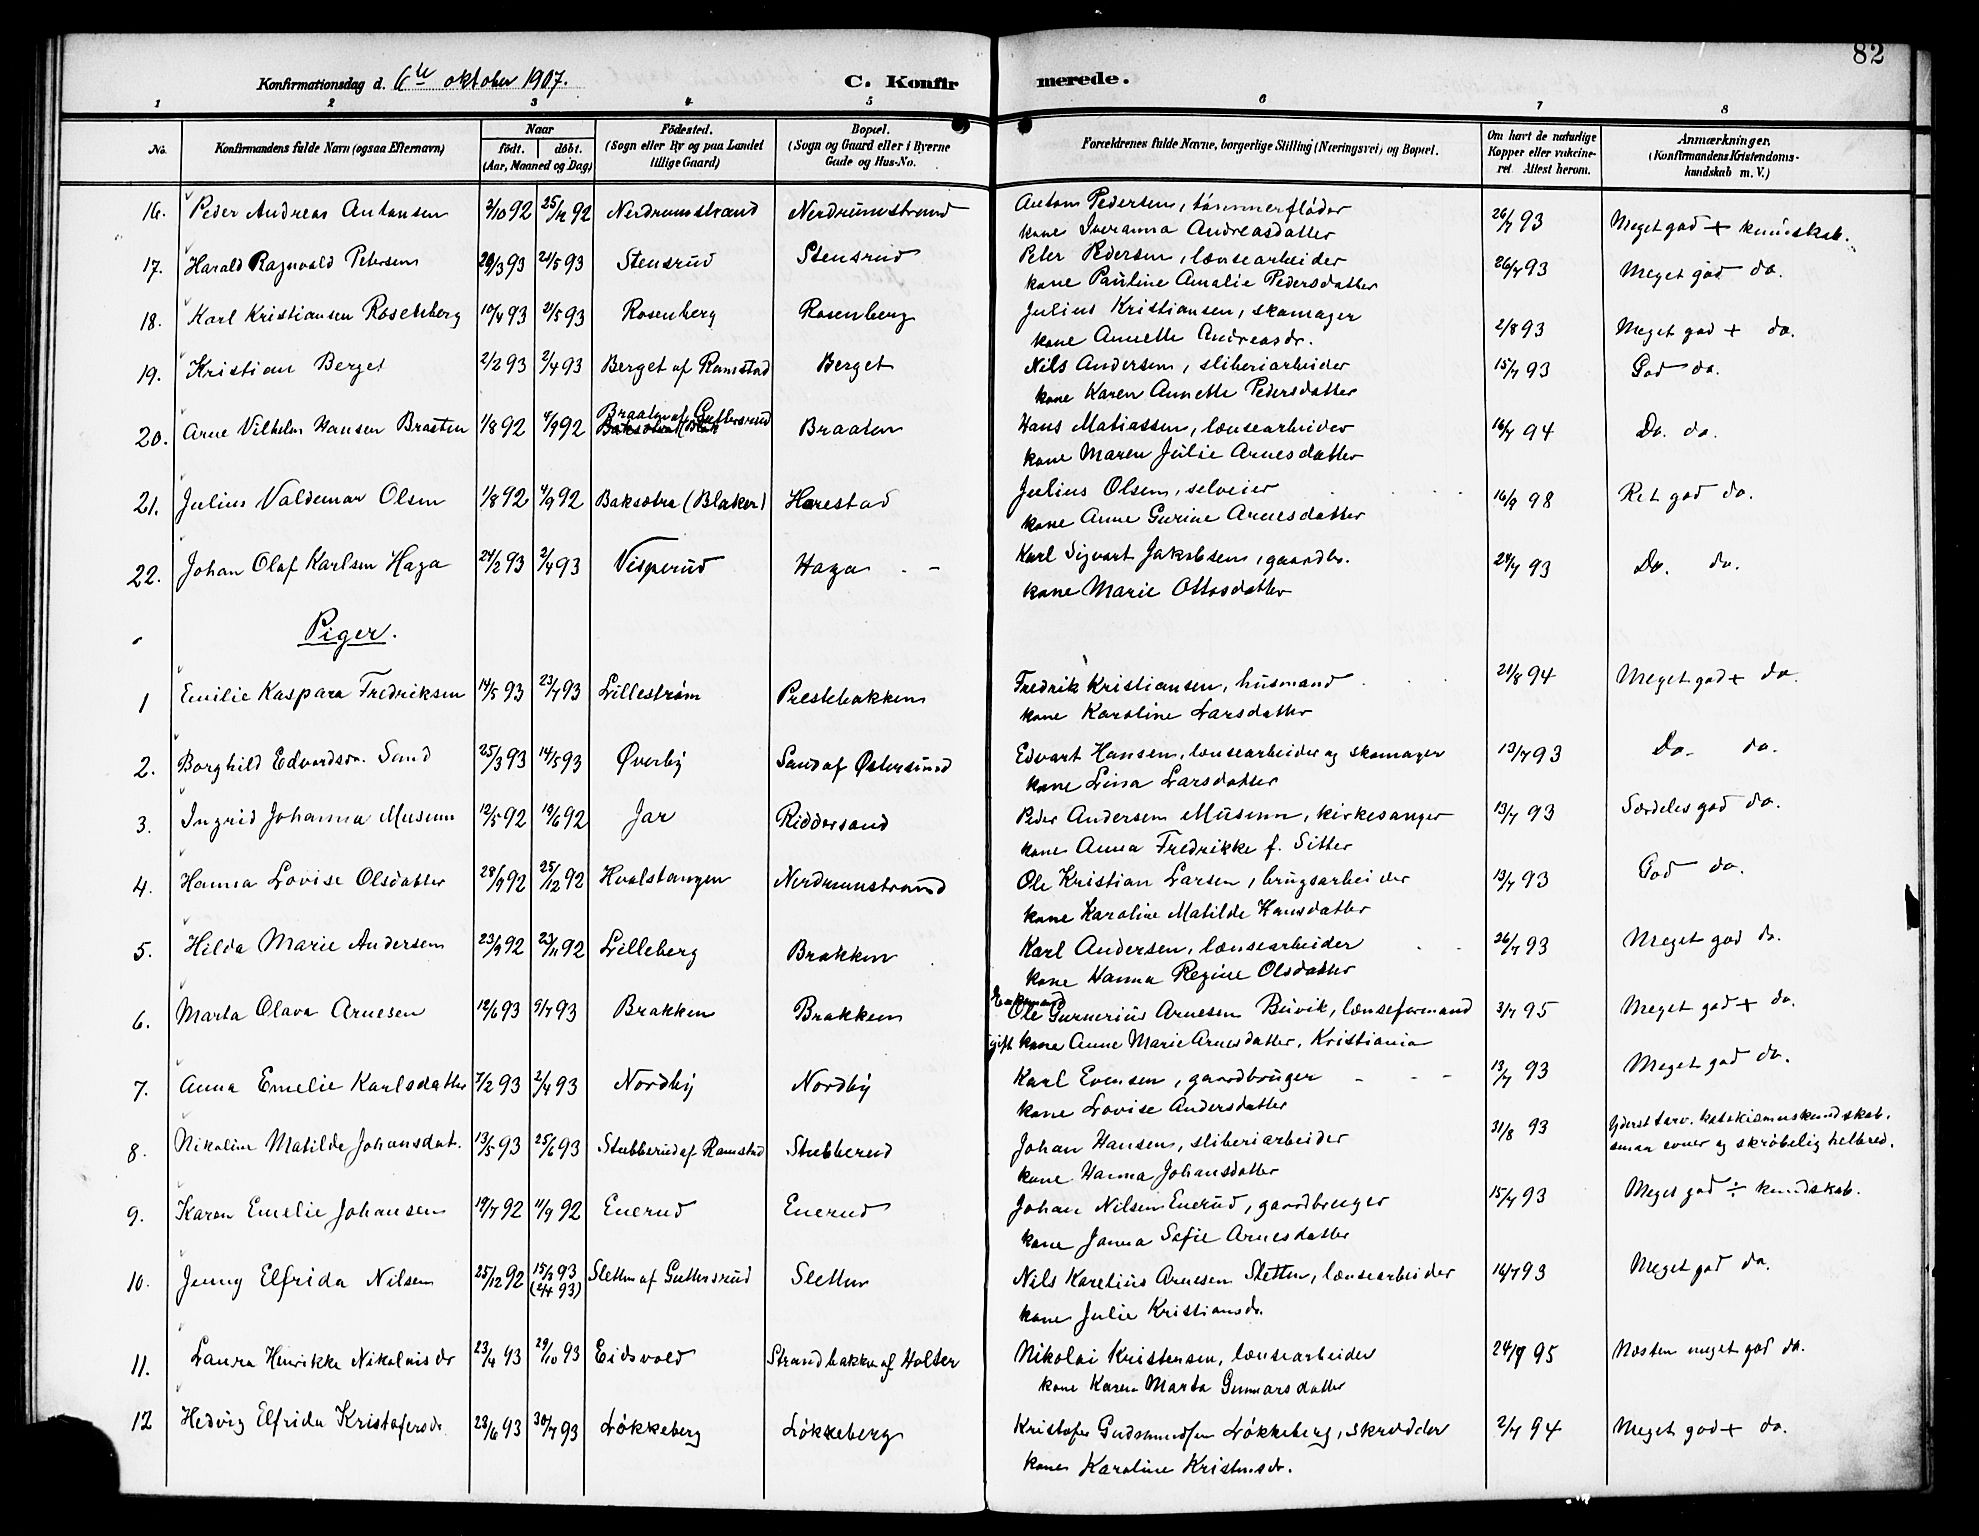 82
Konfirmationsdag d. 6te oktober 1907.
C. Konfirmerede.
1 2 3 4 5 6 7 8
No. Konfirmandens fulde Navn (ogsaa Efternavn) Naar født. døbt. (Aar, Maaned og Dag) Fødested. (Sogn eller By og paa Landet tillige Gaard) Bopæl. (Sogn og Gaard eller i Byerne Gade og Hus-No. Forældrenes fulde Navne, borgerlige Stilling (Næringsvei) og Bopæl. Om havt de naturlige Kopper eller vakcineret. Attest herom. Anmærkninger. (Konfirmandens Kristendomskundskab m. V.)
16. Peder Andreas Antonsen 2/10 92 25/12 92 Nerdrumstrand Nerdrumstrand Anton Pedersen, tømmerfløder 26/7 93 Meget god + kundskab.
kone Iveranna Andreasdatter
17. Harald Ragnvald Petersen 28/3 93 21/5 93 Stensrud Stensrud Peter Pedersen, lænsearbeider 26/7 93 Meget god do.
kone Pauline Amalie Pedersdatter
18. Karl Kristiansen Rosenberg 10/4 93 21/5 93 Rosenberg Rosenberg Julius Kristiansen, skomager 2/8 93 Meget god + do.
kone Annette Andreasdr.
19. Kristian Berget 2/2 93 2/4 93 Berget af Ramstad Berget Nils Andersen, sliberiarbeider 15/7 93 God do.
kone Karen Annette Pedersdatter
20. Arne Vilhelm Hansen Braaten 1/8 92 4/9 92 Braaten af Guttersrud Braaten Hans Matiassen, lænsearbeider 16/7 94 Do. do.
kone Maren Julie Arnesdatter
21. Julius Valdemar Olsen 1/8 92 4/9 92 Baksøbra (Blaker) Harestad Julius Olsen, selveier 16/9 98 Ret god do.
kone Anne Gurine Arnesdatter
22. Johan Olaf Karlsen Haga 24/2 93 2/4 93 Visperud Haga Karl Sigvart Jakobsen, gaardbr. 24/7 93 Do. do.
kone Marie Ottosdatter
Piger.
1 Emilie Kaspara Fredriksen 14/5 93 23/7 93 Lillestrøm Prestebakken Fredrik Kristiansen, husmand 21/8 94 Meget god + do.
kone Karoline Larsdatter
2. Borghild Edvardsdr. Sand 25/3 93 14/5 93 Øverby Sand af Østersund Edvart Hansen, lænsearbeider og skomager 13/7 93 Do. do.
kone Lina Larsdatter
3. Ingrid Johanna Museum 12/5 92 19/6 92 Jar Riddersand Peder Andersen Museum, kirkesanger 13/7 93 Særdeles god do.
kone Anna Fredrikke f. Sitter
4. Hanna Lovise Olsdatter 28/9 92 25/12 92 Hvalstangen Nerdrumstrand Ole Kristian Larsen, brugsarbeider 13/7 93 God do.
kone Karoline Matilde Hansdatter
5. Hilda Marie Andersen 23/9 92 23/11 92 Lilleberg Brakken Karl Andersen, lænsearbeider 26/7 93 Meget god do.
kone Hanna Regine Olsdatter
6. Marta Olava Arnesen 12/6 93 9/7 93 Brakken Brakken Enkemand Ole Gunerius Arnesen Buvik, lænseformand 3/7 95 Meget god + do.
gift kone Anne Marie Arnesdatter, Kristiania
7. Anna Emelie Karlsdatter 7/2 93 2/4 93 Nordby Nordby Karl Evensen, gaardbruger 13/7 93 Meget god do.
kone Lovise Andersdatter
8. Nikoline Matilde Johansdat. 13/5 93 25/6 93 Stubberud af Ramstad Stubberud Johan Hansen, sliberiarbeider 31/8 93 Yderst tarv. katekismuskundskab. smaa evner og skrøbelig helbred.
kone Hanna Johansdatter
9. Karen Emelie Johansen 19/7 92 11/9 92 Enerud Enerud Johan Nilsen Enerud, gaardbruger 15/7 93 Meget god ÷ kundskab.
kone Janna Sofie Arnesdatter
10. Jenny Elfrida Nilsen 25/12 92 15/2 93 (2/4 93) Sletten af Guttersrud Sletten Nils Karelius Arnesen Sletten, lænsearbeider 16/7 93 Meget god do.
kone Julie Kristiansdr.
11. Laura Henrikke Nikolaisdr 23/4 93 29/10 93 Eidsvold Strandbakken af Holter Nikolai Kristensen, lænsearbeider 24/9 95 Næsten meget god do.
kone Karen Marta Gunnarsdatter
12 Hedvig Elfrida Kristofersdr 23/6 93 30/7 93 Løkkeberg Løkkeberg Kristofer Gudmundsen Løkkeberg, skrædder 2/7 94 Meget god + do.
kone Karoline Kristensdr.